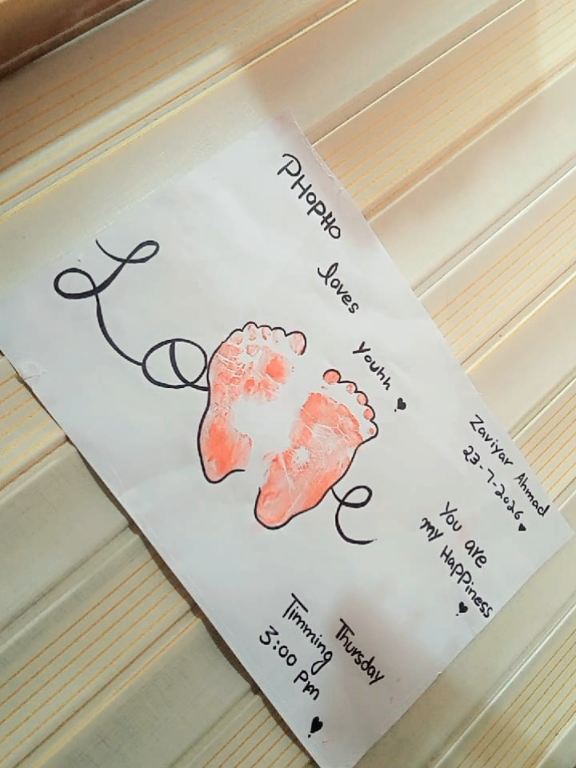 PHoPHo
loves
Youhh
Love
Zaviyar Ahmad
23-7-2026
You are
my Happiness
Thursday
Timming
3:00 Pm